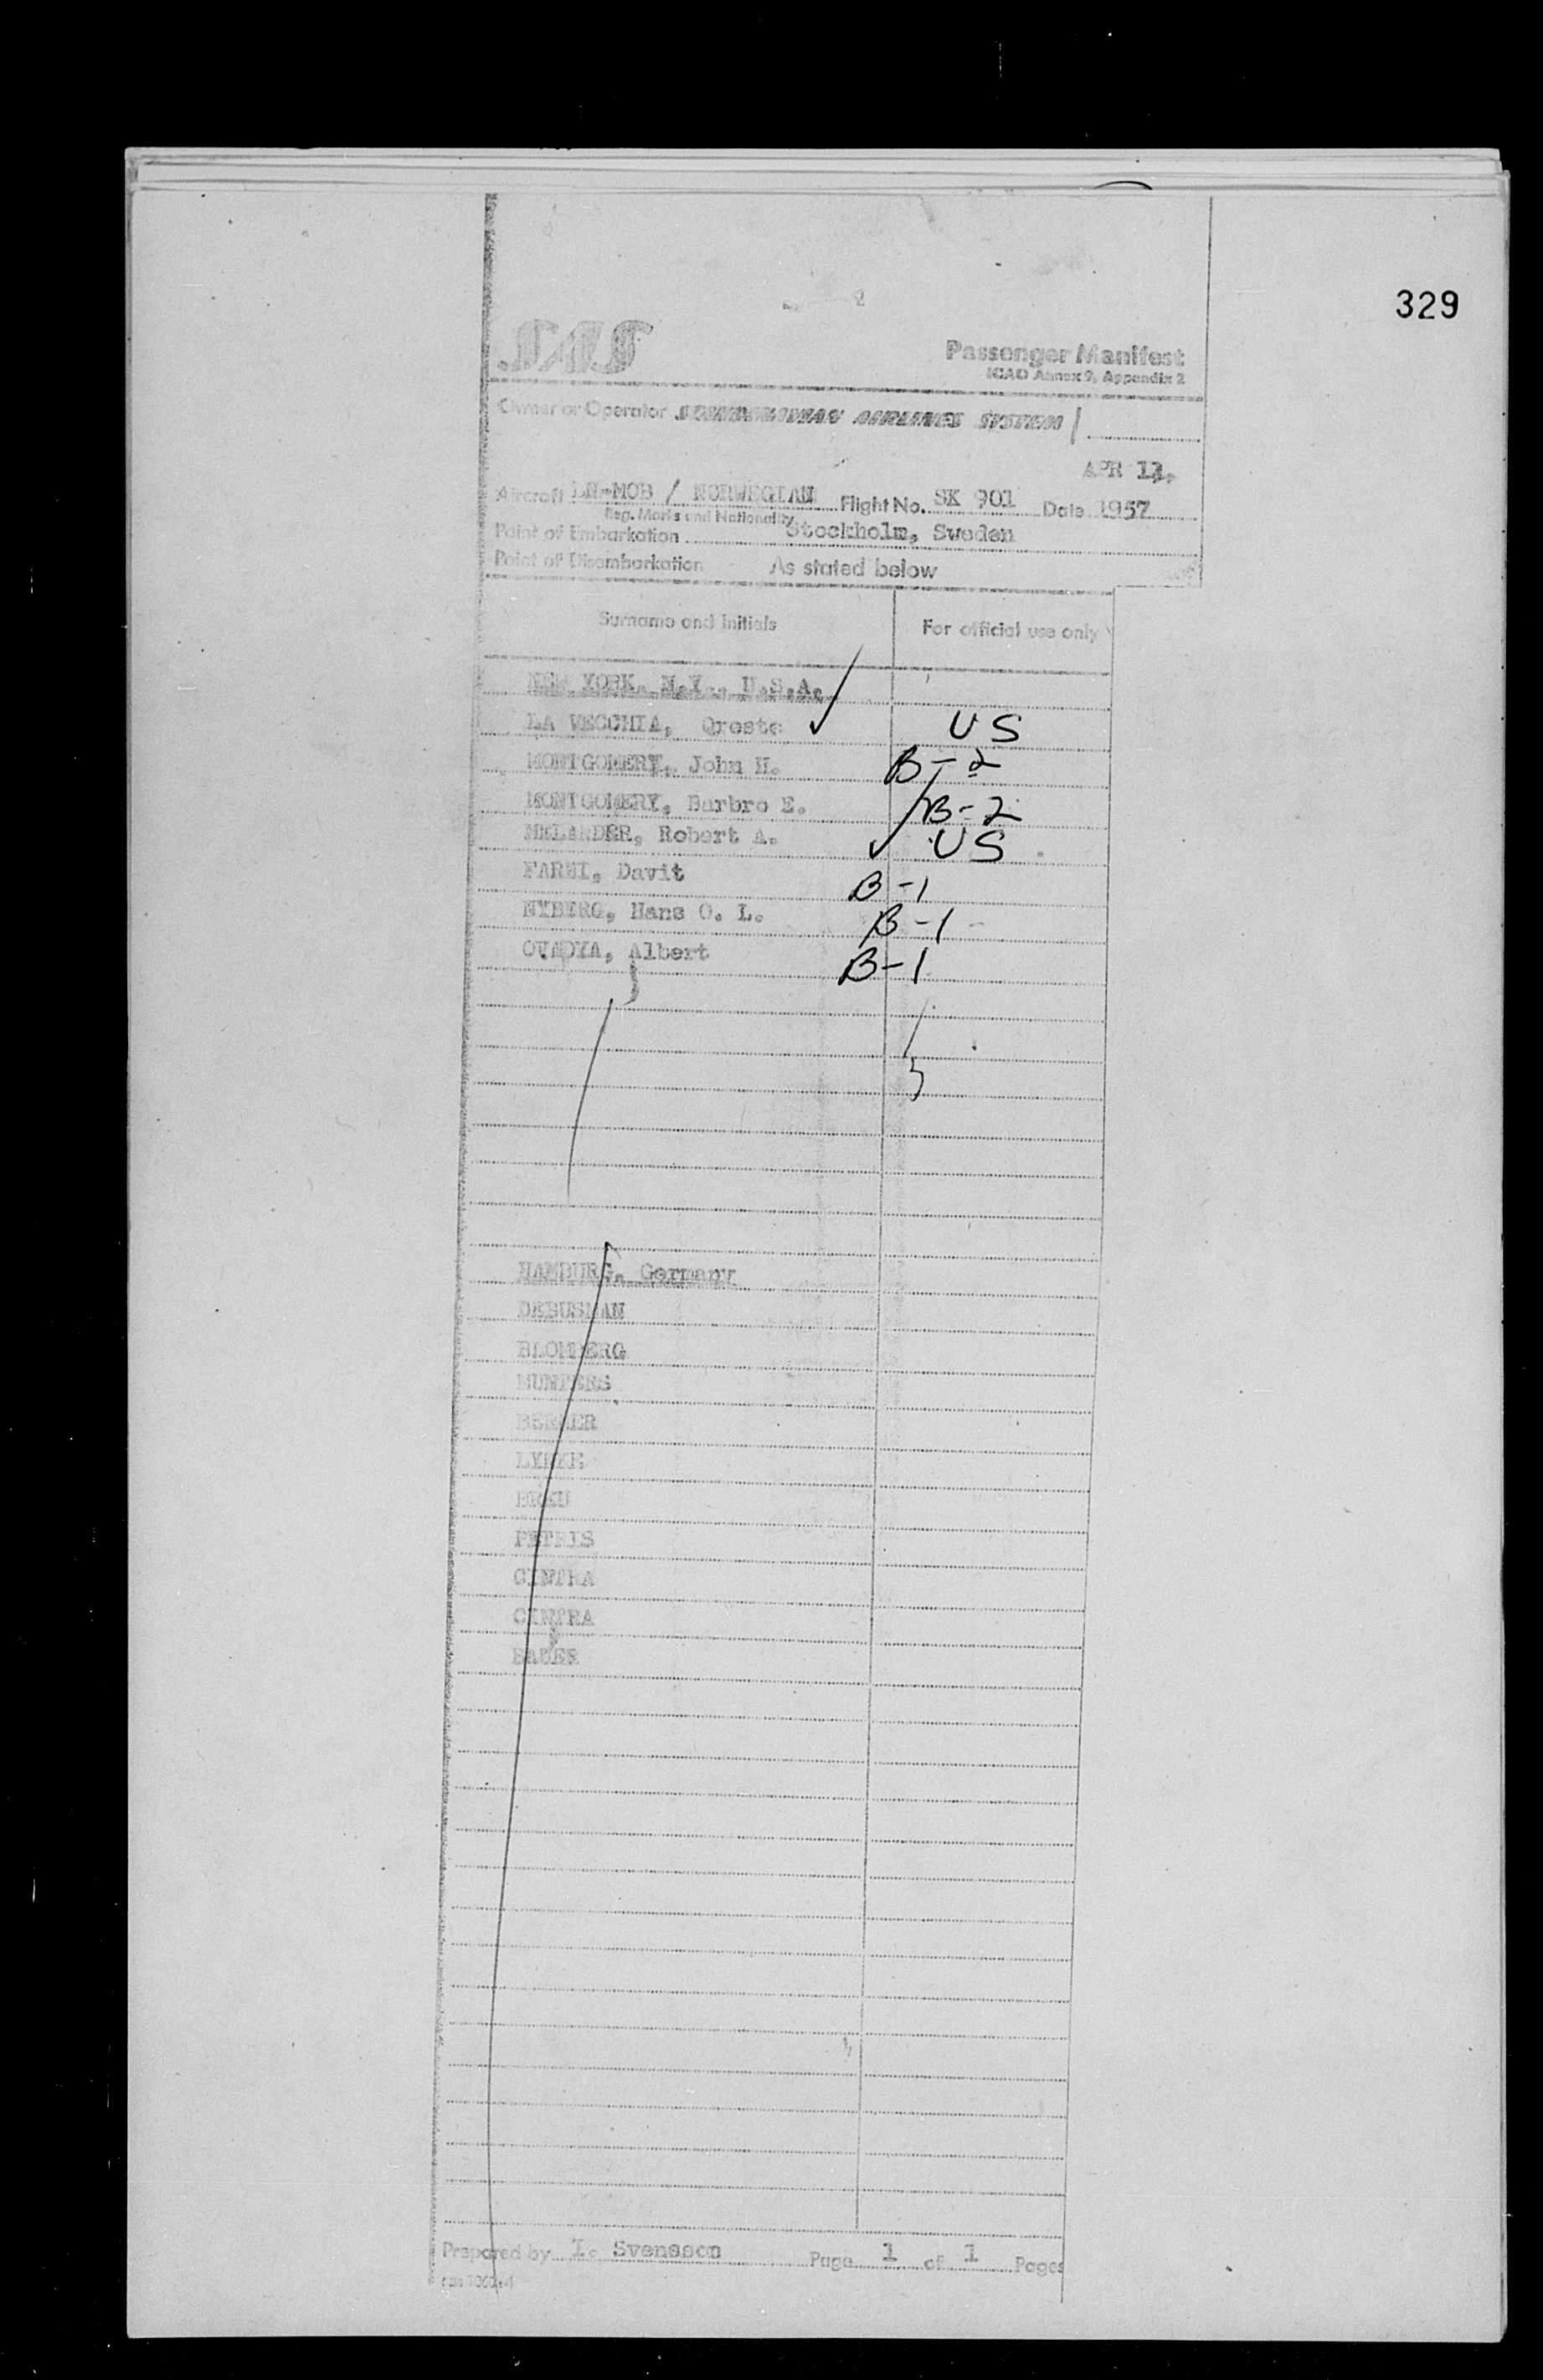 329
SAS
Passenger Manifest
ICAO Annex 9, Appendix 2
Owner or Operator SCANDINAVIAN AIRLINES SYSTEM
APR
Aircraft LN-MOB / NORWEGIAN Flight No. SK 901 Date 1957
Reg. Marks and Nationality
Point of Embarkation Stockholm, Sweden
Point of Disembarkation As stated below
Surname and Initials For official use only
NEW YORK, N.Y., U.S.A.
LA VECCHIA, Oreste US
MONTGOMERY, John H. B-2
MONTGOMERY, Barbro E. B-2
MELANDER, Robert A. US
FARHI, Davit B-1
NYBERG, Hans O. L. B-1
OVADYA, Albert B-1
HAMBURG, Germany
DEBUSMAN
BLOMBERG
MUNTERS
PETRIS
CINTRA
CINTRA
BAUER
Prepared by I. Svensson Page 1 of 1 Pages